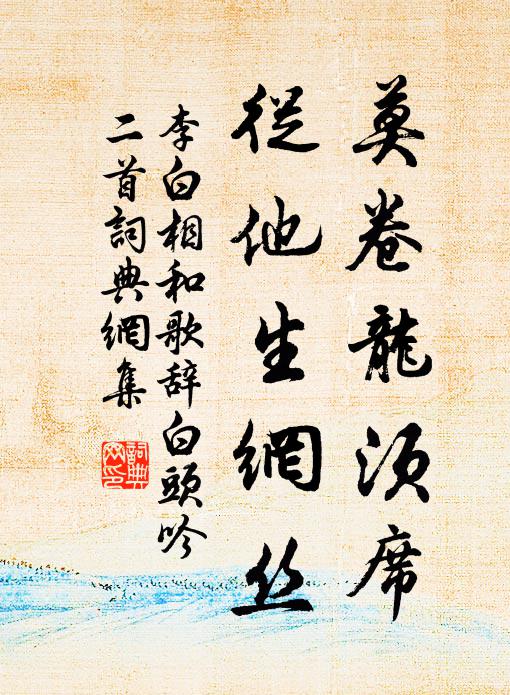 莫卷龍须席
從他生網丝
李白相和歌辞白頭吟
二首詞典網集
詞典